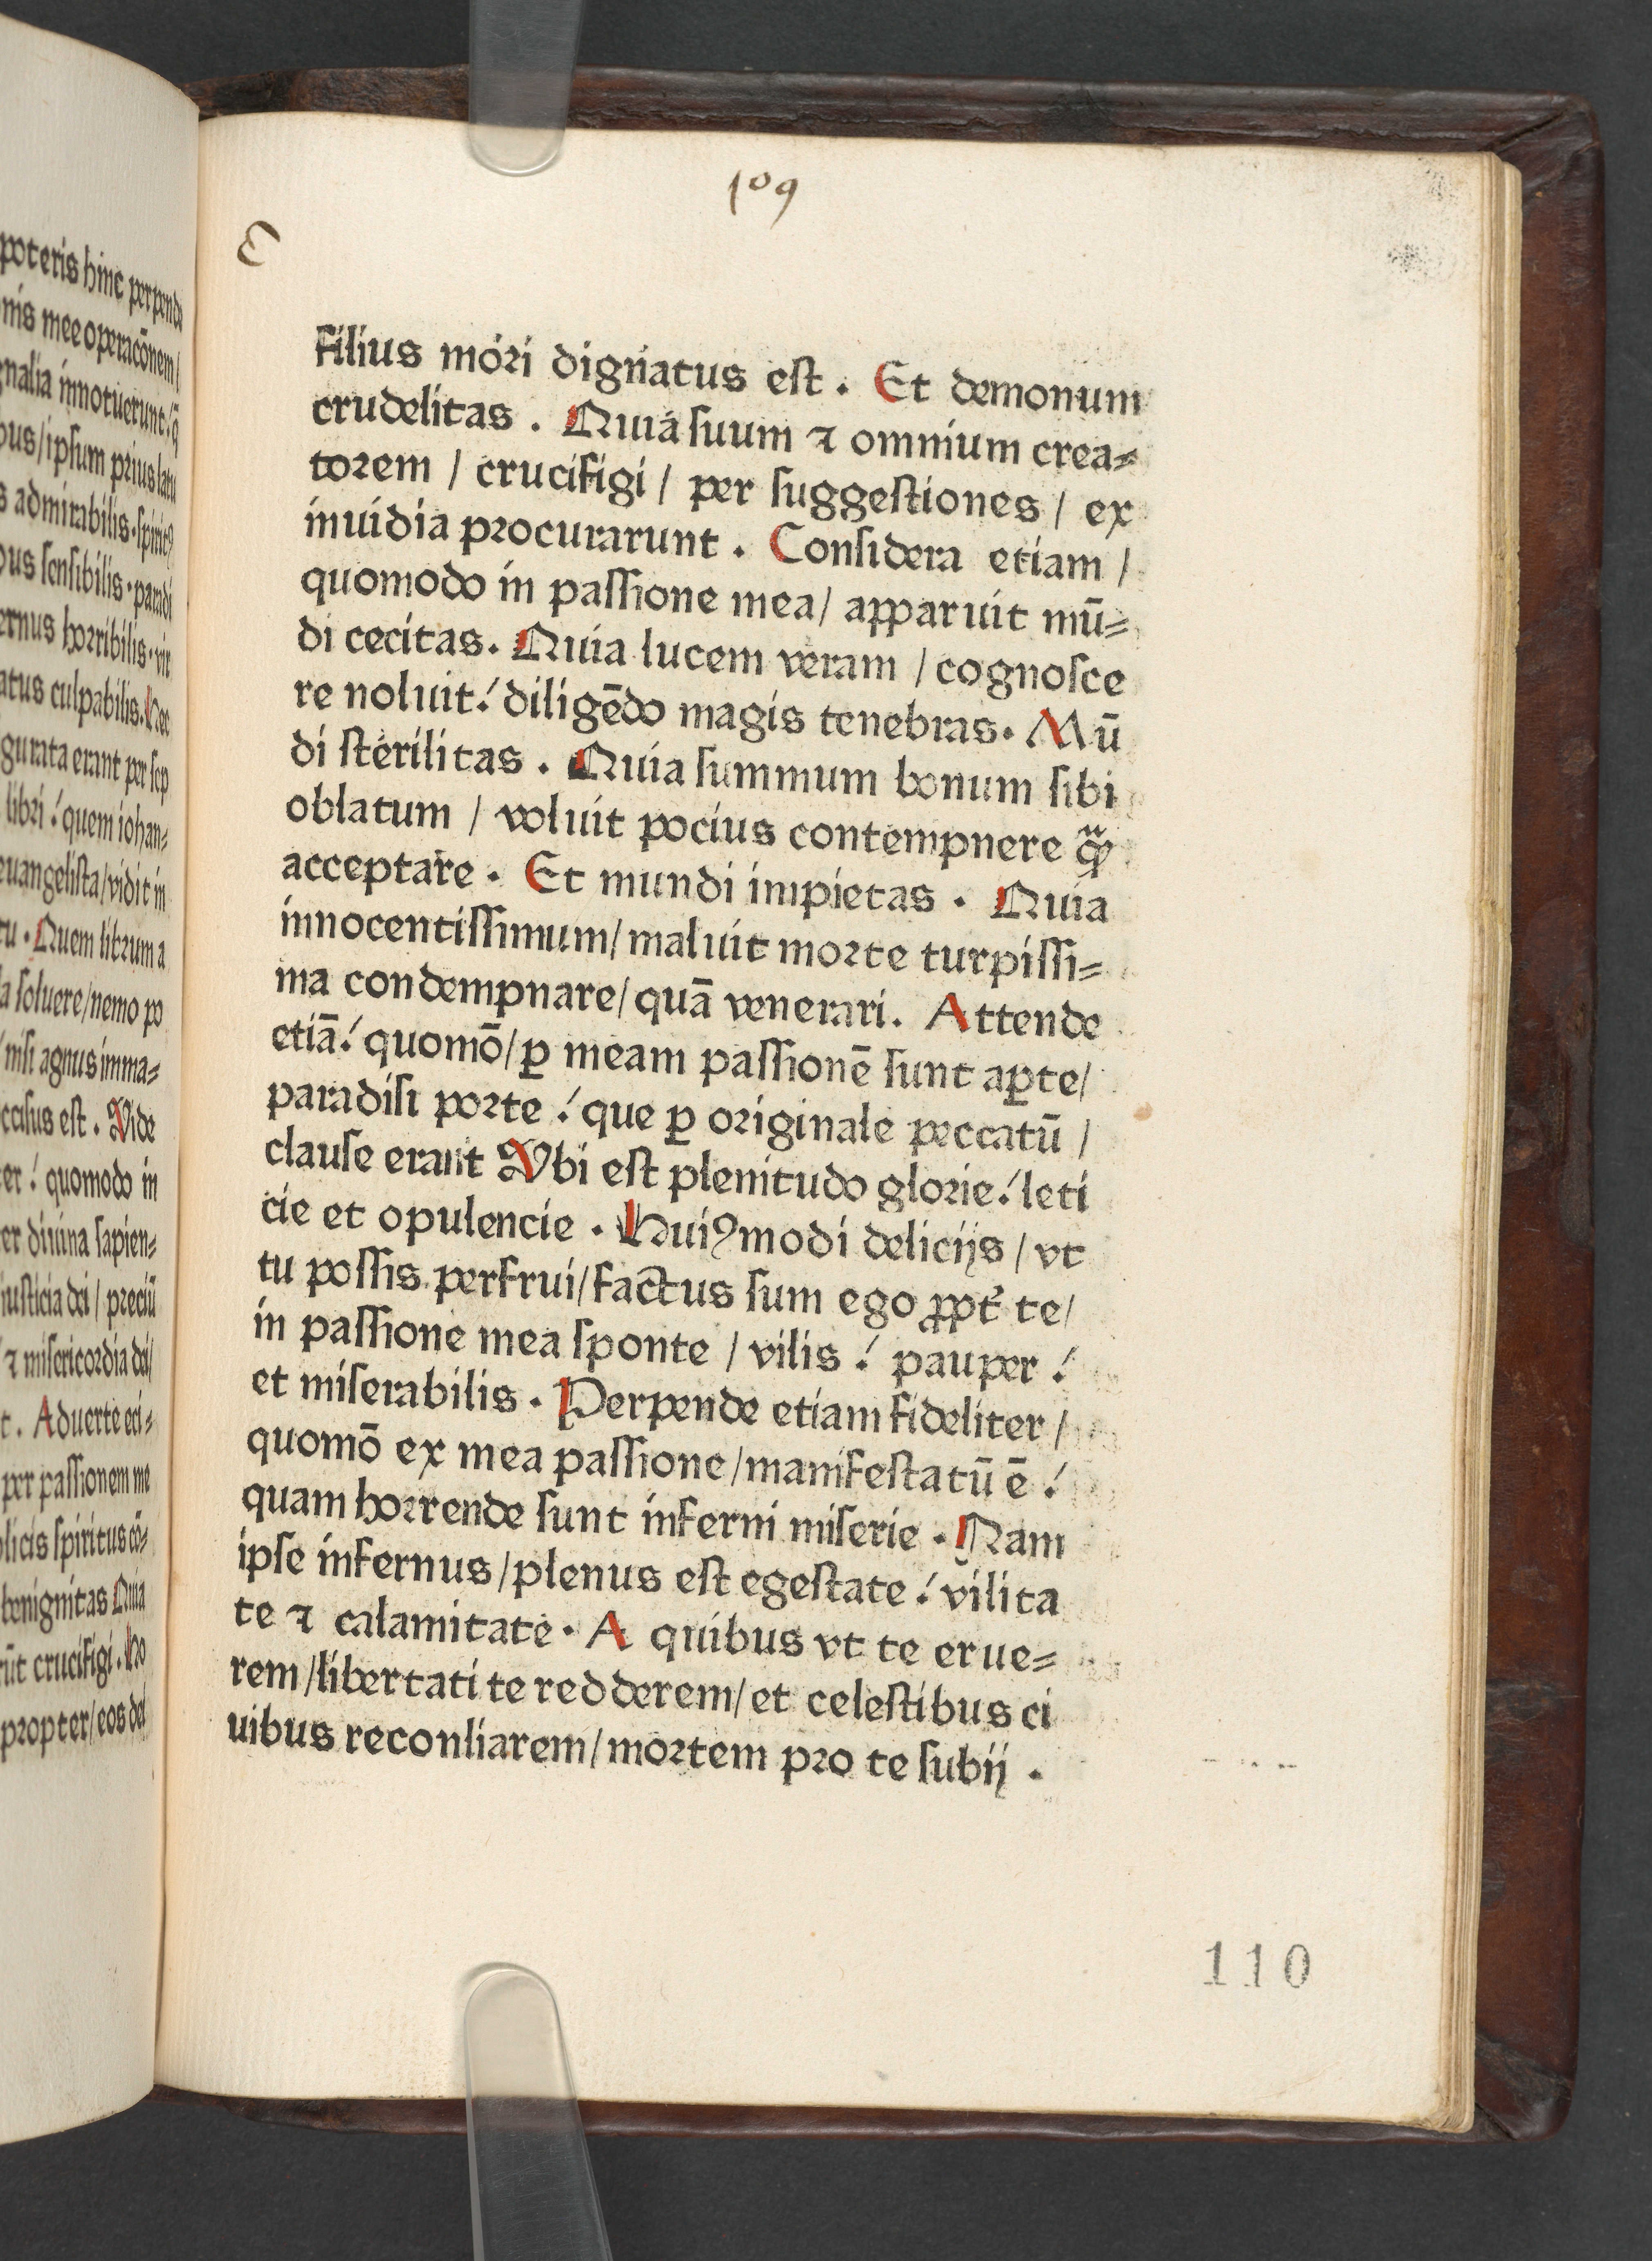 poteris hinc perpende
nis mee operacōnem/
gnalia innotuerunt.ꝰ
bus/ipsum prius latu
s admirabilis.spiritꝰ
bus sensibilis.paradi
ernus horribilis.vir
atus culpabilis.Hec
gurata erant per sep
libri.ꝰquem iohan=
euangelista/vidit in
tu.Quem librum a
la soluere/nemo po
nisi agnus imma=
ccisus est. Vide
ter.ꝰquomodo in
er diuina sapien=
iusticia dei/ preciū
⁊ misericordia dei/
t. Aduerte eci=
per passionem me
licis spiritus cō=
benignitas Quia
rūt crucifigi.Ho
propter/eos dei
109
filius mori dignatus est. Et demonum
crudelitas. Quia suum ⁊ omnium crea=
torem / crucifigi / per suggestiones / ex
inuidia procurarunt. Considera etiam /
quomodo in passione mea/ apparuit mū=
di cecitas. Quia lucem veram / cognosce
re noluit! diligēdo magis tenebras. Mū
di sterilitas. Quia summum bonum sibi
oblatum / voluit pocius contempnere qᷓꝫ
acceptare. Et mundi impietas. Quia
innocentissimum/ maluit morte turpissi=
ma condempnare/ quā venerari. Attende
etiā! quomō/ ꝑ meam passionē sunt aꝑte/
paradisi porte! que ꝑ originale peccatū /
clause erant Vbi est plenitudo glorie! leti
cie et opulencie. Huiꝰmodi delicijs / vt
tu possis perfrui/ factus sum ego ꝓpt̉ te/
in passione mea sponte / vilis! pauper!
et miserabilis. Perpende etiam fideliter /
quomō ex mea passione/ manifestatū ē!
quam horrende sunt inferni miserie. Nam
ipse infernus/ plenus est egestate! vilita
te ⁊ calamitate. A quibus vt te erue=
rem/ libertati te redderem/ et celestibus ci
uibus reconliarem/ mortem pro te subij.
110